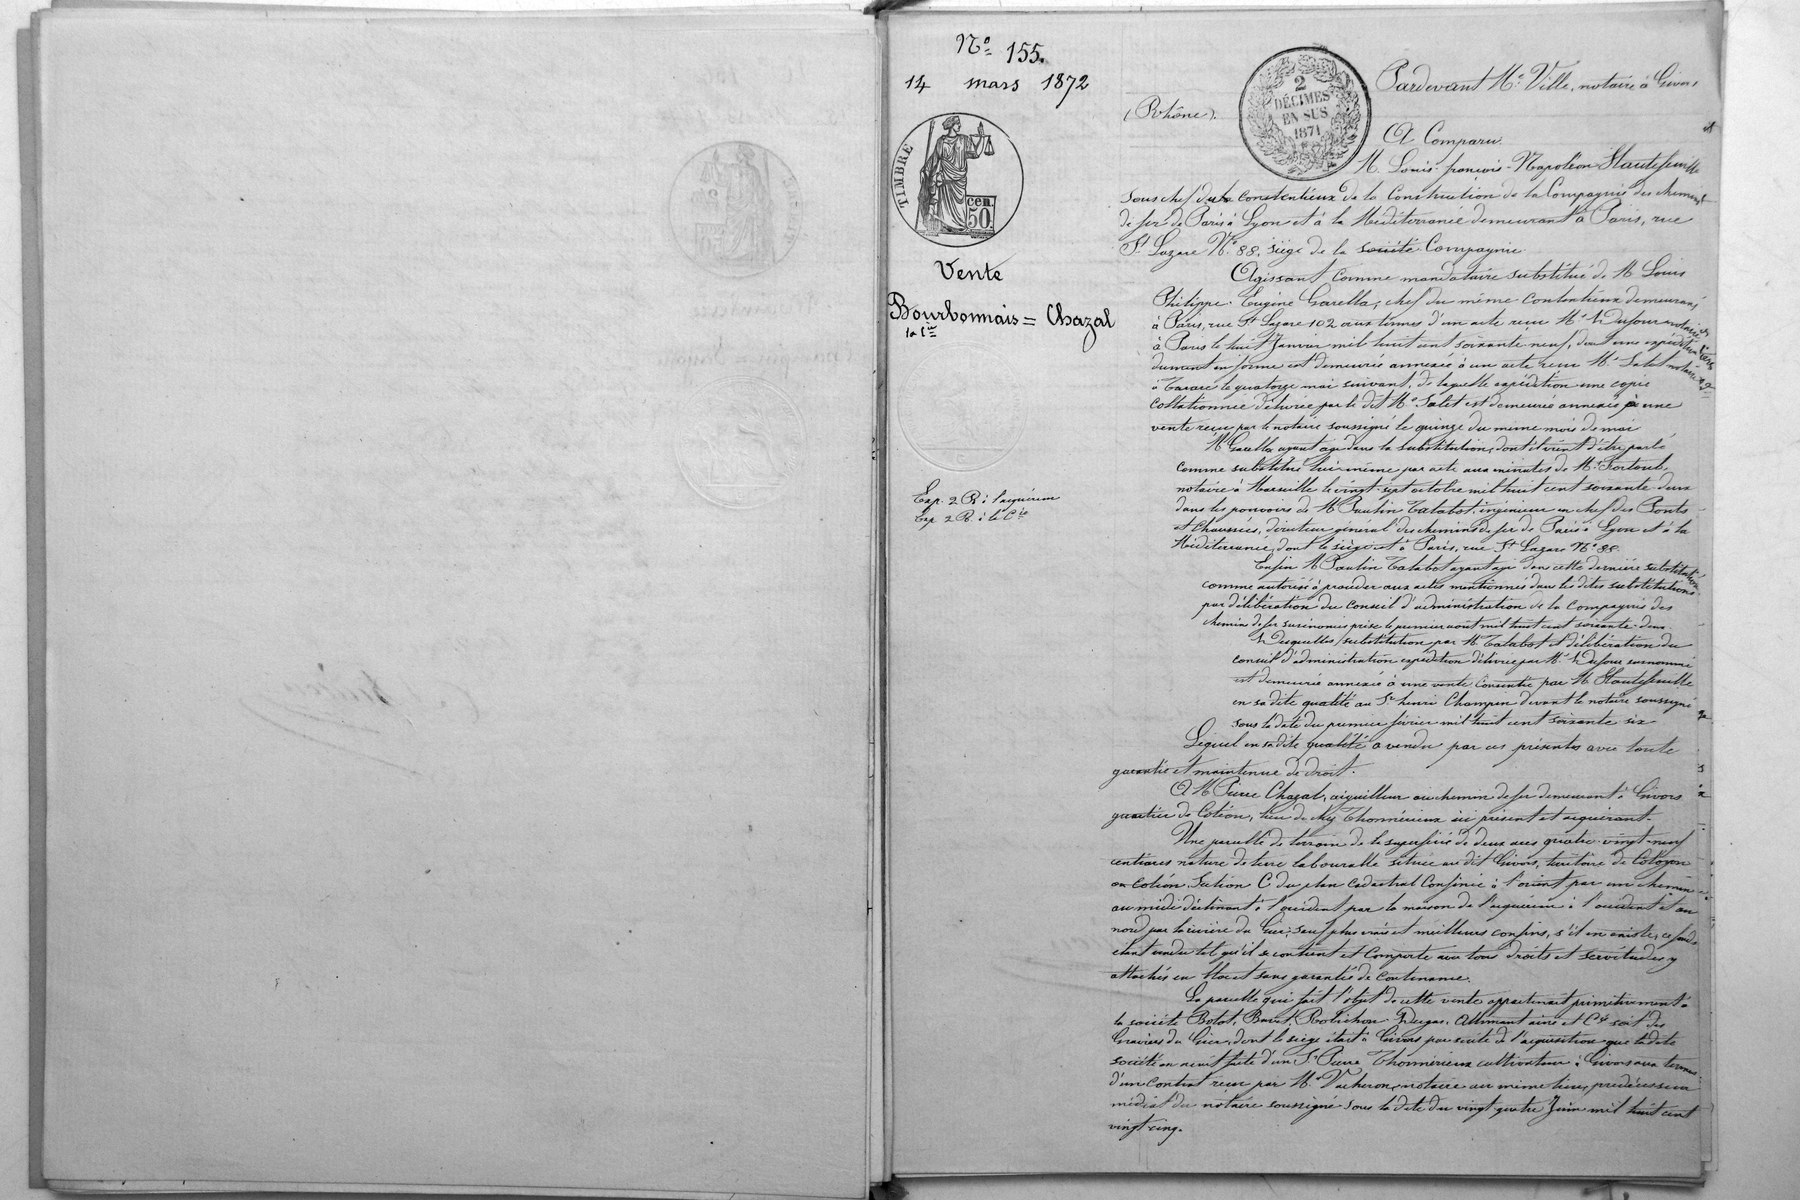 N° 155.
14 mars 1872
TIMBRE
50 cen.
Vente
Bourbonnais = Chazal
la Cie
Exp. 2 R. à l'acquéreur
Exp 2 R. à la Cie
2
DÉCIMES
EN SUS
1871
Pardevant Me Ville, notaire à Givors
(Rhône).
A Comparu
M. Louis-françois-Napoléon Hautefeuille
sous chef du contentieux de la Construction de la Compagnie des chemins
de fer de Paris à Lyon et à la Méditerranée demeurant à Paris, rue
St Lazare N° 88, siège de la société Compagnie
Agissant comme mandataire substitué de M Louis
Philippe-Eugène Garella, chef du même contentieux demeurant
à Paris, rue St Lazare 102 aux termes d'un acte reçu Me Dufour notaire
à Paris le huit Janvier mil huit cent soixante neuf, dont une expédition
dument en forme est demeurée annexée à un acte reçu Me Salet notaire
à Tarare le quatorze mai suivant, de laquelle expédition une copie
Collationnée délivrée par le dit Me Salet est demeurée annexée à une
vente reçue par le notaire soussigné le quinze du même mois de mai
M Garella ayant agi dans la substitution, dont il vient d'être parlé
comme substitué lui-même par acte aux minutes de Me Fortoul,
notaire à Marseille le vingt-sept octobre mil huit cent soixante-deux
dans les pouvoirs de M Paulin Talabot, ingénieur en chef des Ponts
et Chaussées, directeur général des chemins de fer de Paris à Lyon et à la
Méditerranée, dont le siège est à Paris, rue St Lazare N° 88.
Enfin M Paulin Talabot ayant agi dans cette dernière substitution
comme autorisé à procéder aux actes mentionnés dans les dites substitutions
par délibération du Conseil d'administration de la compagnie des
chemins de fer susénoncés prise le premier août mil huit cent soixante-deux
Desquelles substitution par M. Talabot et délibération du
conseil d'administration expédition délivrée par Me Dufour surnommé
est demeurée annexée à une vente Consentie par M Hautefeuille
en sa dite qualité au Sr henri Champin devant le notaire soussigné
sous la date du premier février mil huit cent soixante six
Lequel en sa dite qualité a vendu par ces présentes avec toute
garantie et maintenue de droit.
A M Pierre Chazal, aiguilleur au chemin de fer demeurant à Givors
quartier de Cotéon, lieu de Thomérieux ici présent et acquérant.
Une parcelle de terrain de la superficie de deux ares quatre-vingt-neuf
centiares nature de terre labourable située au dit Givors, territoire de Cotéyon
ou Cotéon, Section C du plan cadastral Confinée à l'orient par un chemin
au midi déclinant à l'occident par la maison de l'acquéreur à l'occident et au
nord par la rivière du Gier, sauf plus vrais et meilleurs confins, s'il en existe, ce fonds
étant vendu tel qu'il se contient et Comporte avec tous droits et servitudes y
attachés en bloc et sans garantie de Contenance.
La parcelle qui fait l'objet de cette vente appartenait primitivement à
la société Botot, Bovet, Robichon Allimant ainé et Cie soit des
Graviers du Gier, dont le siège était à Givors par suite de l'acquisition que la dite
Société en avait faite d'un Sr Pierre Thomérieux cultivateur à Givors aux termes
d'un Contrat reçu par Me Vacheron, notaire au même lieu, prédécesseur
médiat du notaire soussigné sous la date du vingt quatre Juin mil huit cent
vingt-cinq.